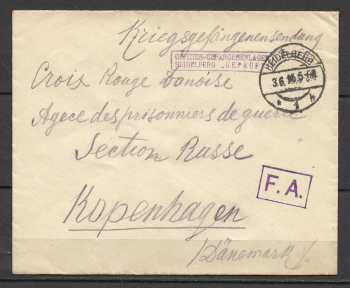 Kriegsgefangenensendung
OFFIZIER-GEFANGENENLAGER
HEIDELBERG „GEPRÜFT"
HEIDELBERG
3.6.16.5-6N
* 1 h
Croix Rouge Danoise
Agece des prisonniers de guerre
Section Russe
F.A.
Kopenhagen
/Dänemark/.